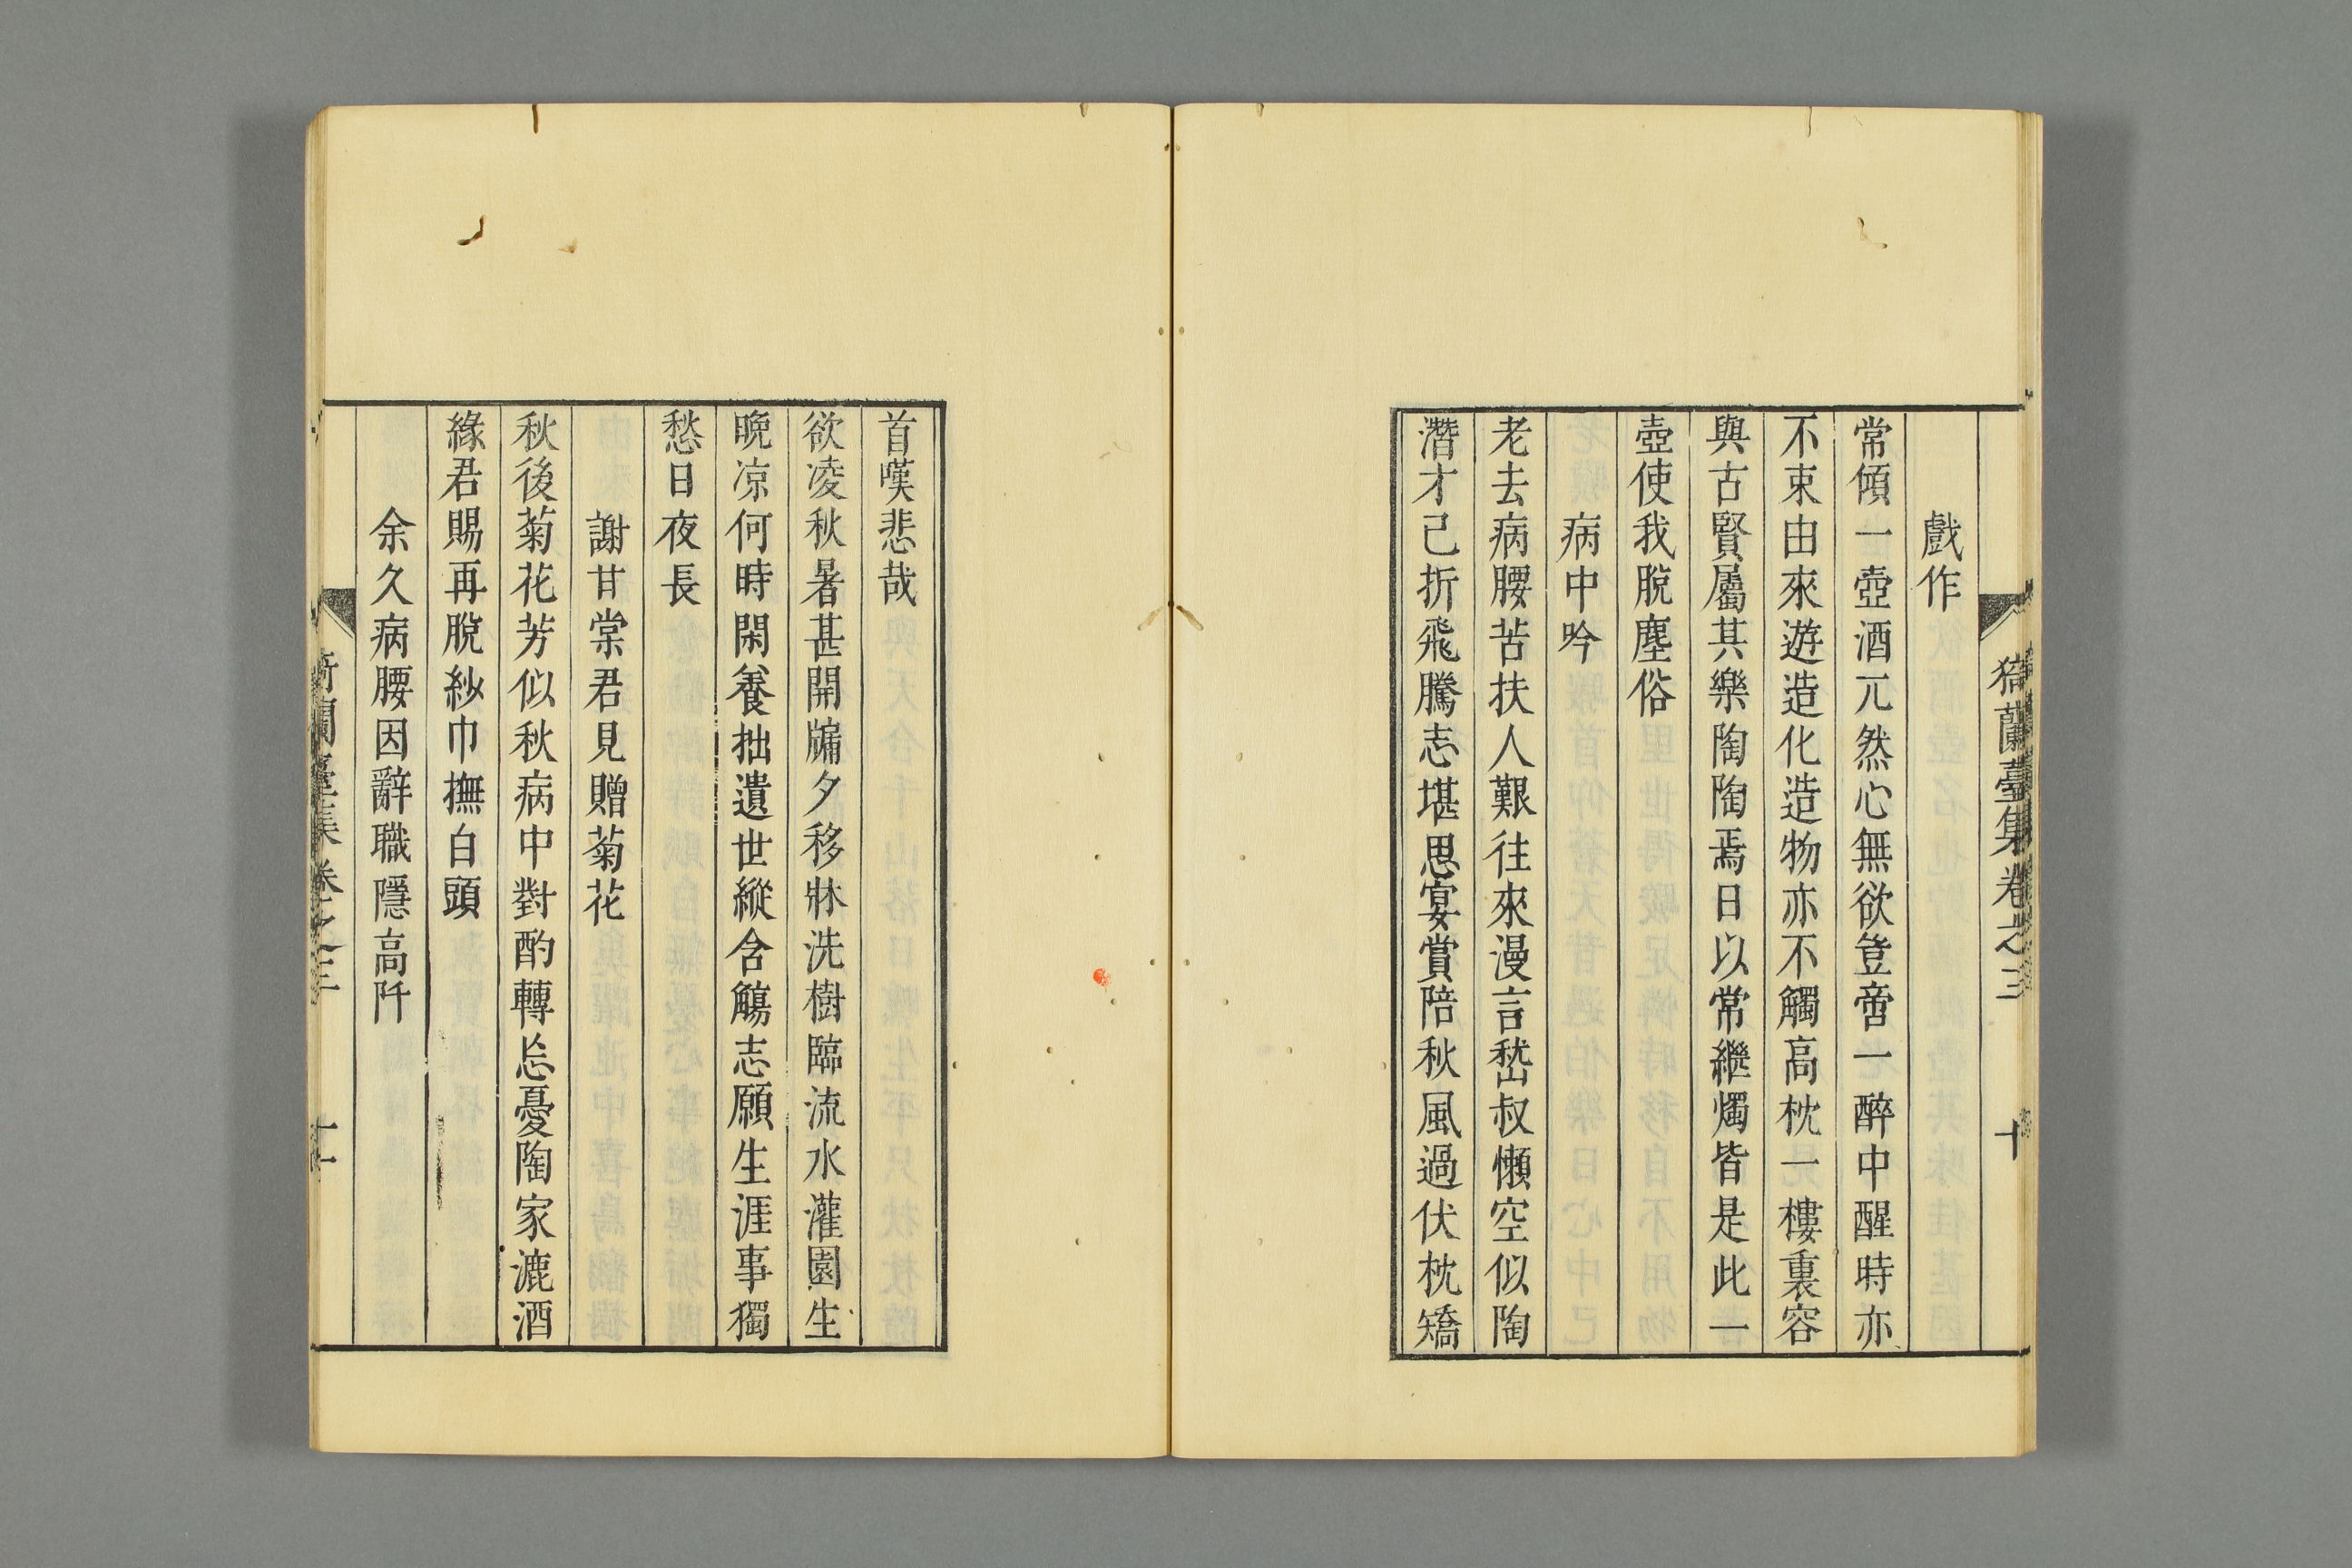 猗蘭臺集卷之三 十
戲作
常傾一壺酒兀然心無欲豈啻一醉中醒時亦
不束由來遊造化造物亦不觸高枕一樓裏容
與古賢屬其樂陶陶焉日以常繼燭皆是此一
壺使我脫塵俗
病中吟
老去病腰苦扶人艱往來漫言嵇叔懶空似陶
潛才己折飛騰志堪思宴賞陪秋風過伏枕矯
首嘆悲哉
欲凌秋暑甚開牖夕移牀洗樹臨流水灌園生
晩凉何時閑養拙遺世縱含觴志願生涯事獨
愁日夜長
謝甘棠君見贈菊花
秋後菊花芳似秋病中對酌轉忘憂陶家漉酒
緣君賜再脫紗巾撫白頭
余久病腰因辭職隱高阡
猗蘭臺集卷之三 十一